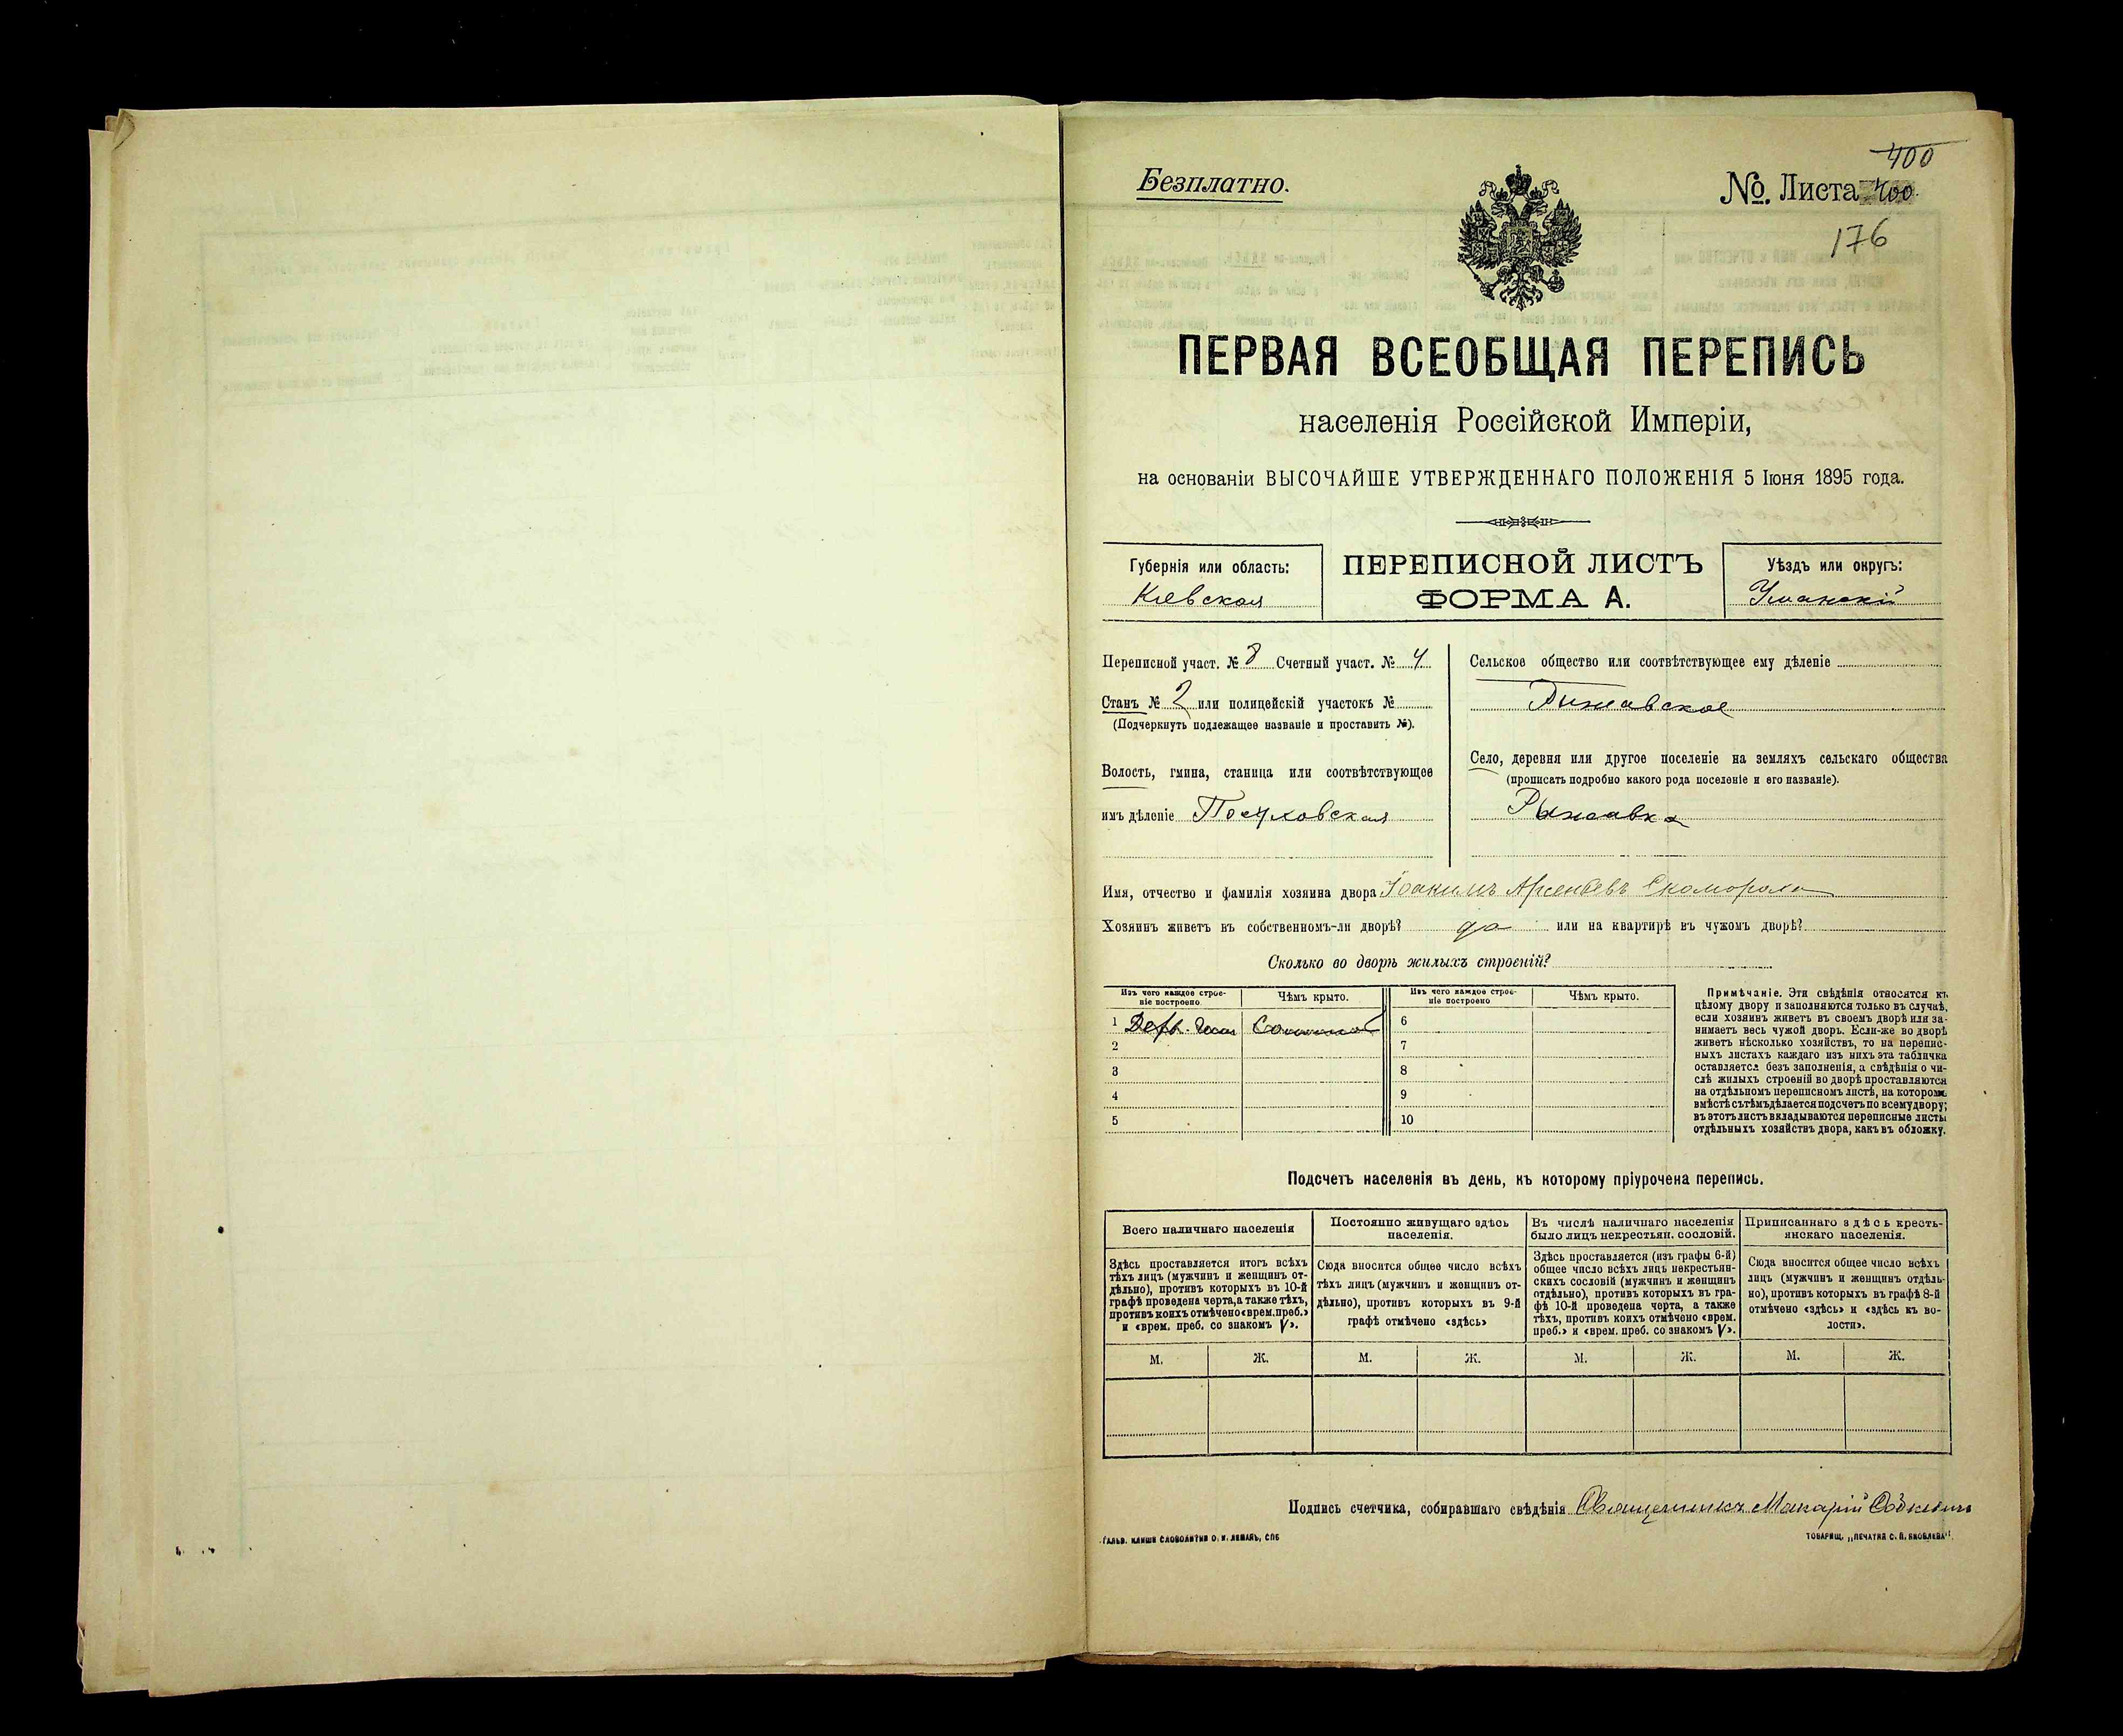 400
Безплатно.
№. Листа 400.
176
ПЕРВАЯ ВСЕОБЩАЯ ПЕРЕПИСЬ
населенія Россійской Имперіи,
на основаніи ВЫСОЧАЙШЕ УТВЕРЖДЕННАГО ПОЛОЖЕНІЯ 5 Іюня 1895 года.
Губернія или область:
Кіевская
ПЕРЕПИСНОЙ ЛИСТЪ
ФОРМА А.
Уѣздъ или округъ:
Уманскій
Переписной участ. № 8 Счетный участ. № 4
Станъ № 2 или полицейскій участокъ №
(Подчеркнуть подлежащее названіе и проставить №).
Волость, гмина, станица или соотвѣтствующее
имъ дѣленіе Посуховская
Сельское общество или соотвѣтствующее ему дѣленіе
Рижавское
Село, деревня или другое поселеніе на земляхъ сельскаго общества
(прописать подробно какого рода поселеніе и его названіе).
Рыжавка
Имя, отчество и фамилія хозяина двора Іоакимъ Арсеньевъ Скоморохъ
Хозяинъ живетъ въ собственномъ-ли дворѣ? да или на квартирѣ въ чужомъ дворѣ?
Сколько во дворѣ жилыхъ строеній?
Изъ чего каждое строе-
ніе построено
Чѣмъ крыто.
Изъ чего каждое строе-
ніе построено
Чѣмъ крыто.
1 Дер. Соломой
2
3
4
5
6
7
8
9
10
Примѣчаніе. Эти свѣдѣнія относятся къ
цѣлому двору и заполняются только въ случаѣ,
если хозяинъ живетъ въ своемъ дворѣ или за-
нимаетъ весь чужой дворъ. Если-же во дворѣ
живетъ нѣсколько хозяйствъ, то на перепис-
ныхъ листахъ каждаго изъ нихъ эта табличка
оставляется безъ заполненія, а свѣдѣнія о чи-
слѣ жилыхъ строеній во дворѣ проставляются
на отдѣльномъ переписномъ листѣ, на которомъ
вмѣстѣ съ тѣмъ дѣлается подсчетъ по всему двору;
въ этотъ листъ вкладываются переписные листы
отдѣльныхъ хозяйствъ двора, какъ въ обложку.
Подсчетъ населенія въ день, къ которому пріурочена перепись.
Всего наличнаго населенія
Здѣсь проставляется итогъ всѣхъ
тѣхъ лицъ (мужчинъ и женщинъ от-
дѣльно), противъ которыхъ въ 10-й
графѣ проведена черта, а также тѣхъ,
противъ коихъ отмѣчено «врем. преб.»
и «врем. преб. со знакомъ V».
Постоянно живущаго здѣсь
населенія.
Сюда вносится общее число всѣхъ
тѣхъ лицъ (мужчинъ и женщинъ от-
дѣльно), противъ которыхъ въ 9-й
графѣ отмѣчено «здѣсь»
Въ числѣ наличнаго населенія
было лицъ некрестьян. сословій.
Здѣсь проставляется (изъ графы 6-й)
общее число всѣхъ лицъ некрестьян-
скихъ сословій (мужчинъ и женщинъ
отдѣльно), противъ которыхъ въ гра-
фѣ 10-й проведена черта, а также
тѣхъ, противъ коихъ отмѣчено «врем.
преб.» и «врем. преб. со знакомъ V».
Приписаннаго здѣсь кресть-
янскаго населенія.
Сюда вносится общее число всѣхъ
лицъ (мужчинъ и женщинъ отдѣль-
но), противъ которыхъ въ графѣ 8-й
отмѣчено «здѣсь» и «здѣсь къ во-
лости».
М. Ж. М. Ж. М. Ж. М. Ж.
Подпись счетчика, собиравшаго свѣдѣнія Священникъ Макарій
ГАЛЬВ. КЛИШЕ СЛОВОЛИТНИ О. И. ЛЕМАНЪ, СПБ
ТОВАРИЩ. „ПЕЧАТНЯ С. П. ЯКОВЛЕВА".